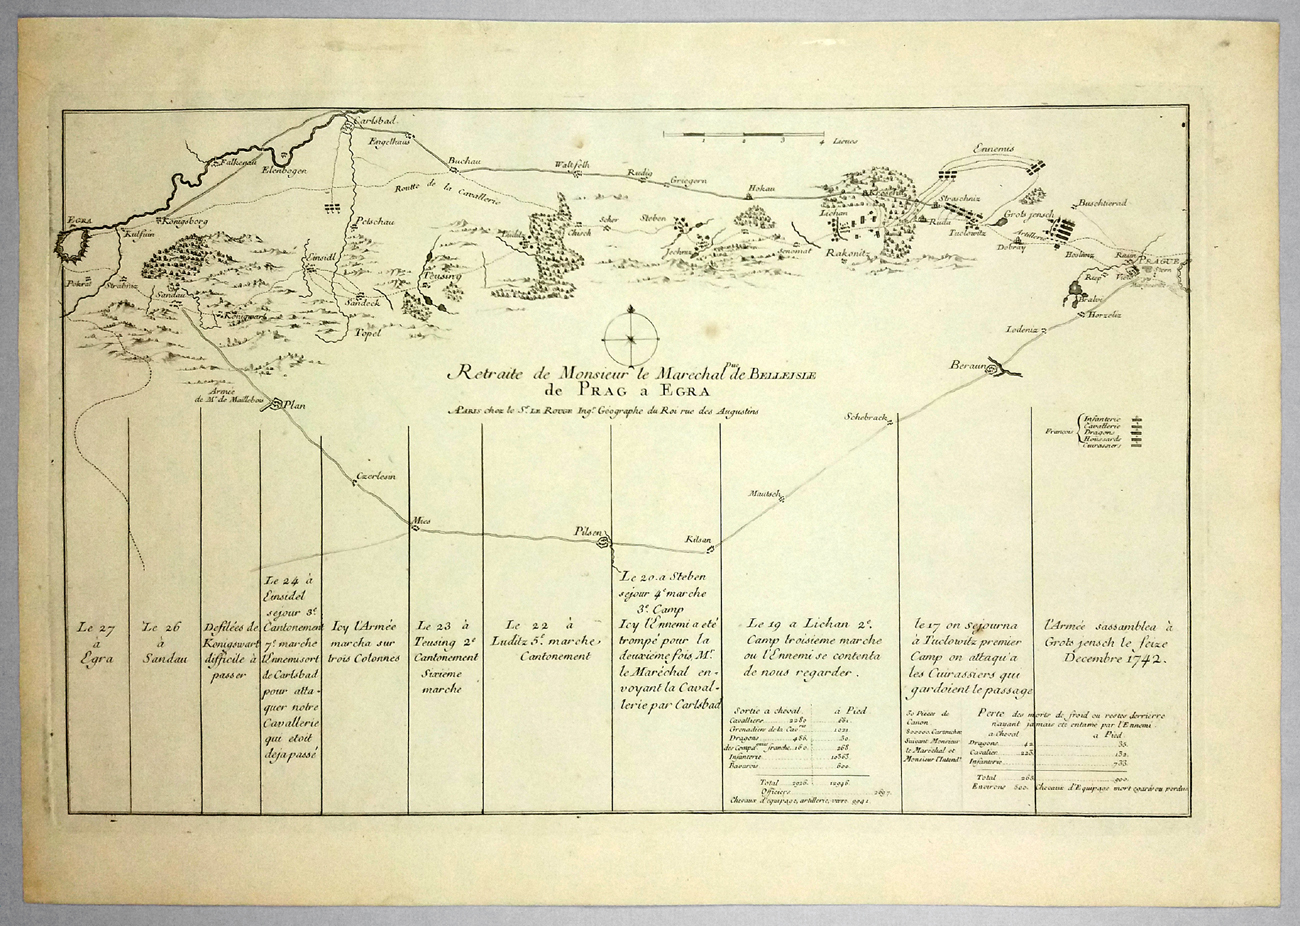 Carlsbad.
Engelhaus
Falkenau
Elenbogen
Buchau
Waltfelh
Rudig
Griegern
Hokau
1 2 3 4 Lieues
Ennemis
Routte de la Cavallerie
EGRA
Königsberg
Kulsum
Petschau
Luditz
Chisch
Scher
Steben
Lichan
Rakonitz
Straschniz
Ruda
Tuclowitz
Grots jensch
Artillerie
Dobray
Buschtierad
Hoslunz
PRAGUE
Einsidl
Teusing
Sandeck
Topel
Pokrat
Strabnitz
Sandau
Königwart
Horzeliz
Lodeniz
Beraun
Retraite de Monsieur le Marechal Duc de BELLEISLE
de PRAG a EGRA
A PARIS chez le Sr. LE ROUGE Ingr. Géographe du Roi rue des Augustins
Armée
de Mr. de Maillebois
Plan
Schebrack
François
Infanterie
Cavallerie
Dragons
Houssards
Cuirassiers
Czerlesin
Mautsch
Mies
Pilsen
Kilsan
Le 27
à
Egra
Le 26
à
Sandau
Defilées de
Konigswart
difficile à
passer
Le 24 à
Einsidel
sejour 3e.
Cantonement
7e. marche
l'Ennemi sort
de Carlsbad
pour atta-
quer notre
Cavallerie
qui etoit
deja passé
Icy l'Armée
marcha sur
trois Colonnes
Le 23 à
Teusing 2e
Cantonement
Sixieme
marche
Le 22 à
Luditz 5e. marche
Cantonement
Le 20. a Steben
sejour 4e marche
3e. Camp
Icy l'Ennemi a eté
trompé pour la
deuxième fois, Mr.
le Maréchal en-
voyant la Caval-
lerie par Carlsbad
Le 19 a Lichan 2e.
Camp troisieme marche
ou l'Ennemi se contenta
de nous regarder.
le 17 on sejourna
à Tuclowitz premier
Camp on attaqu'a
les Cuirassiers qui
gardoient le passage
l'Armée s'assamblea à
Grots jensch le seize
Decembre 1742.
Sortie a cheval. à Pied
Cavalliers 2280 661.
Grenadiers de la Cavrie 1021
Dragons 486. 30.
des Compagnies franche 160. 268.
Infanterie 10363.
Bavarois 600.
Total 2926. 12946.
Officiers 2697.
Chevaux d'equipage, artillerie, vivre 9941.
30 Pieces de
Canon
Suivant Monsieur
le Maréchal et
Monsieur l'Intendt
Perte des morts de froid ou restes derrierre
n'ayant jamais eté entame par l'Ennemi.
a Cheval a Pied
Dragons 42 35.
Cavalier 223. 132.
Infanterie 733.
Total 265. 900.
Environs 800. Chevaux d'Equipage mort egarés ou perdus